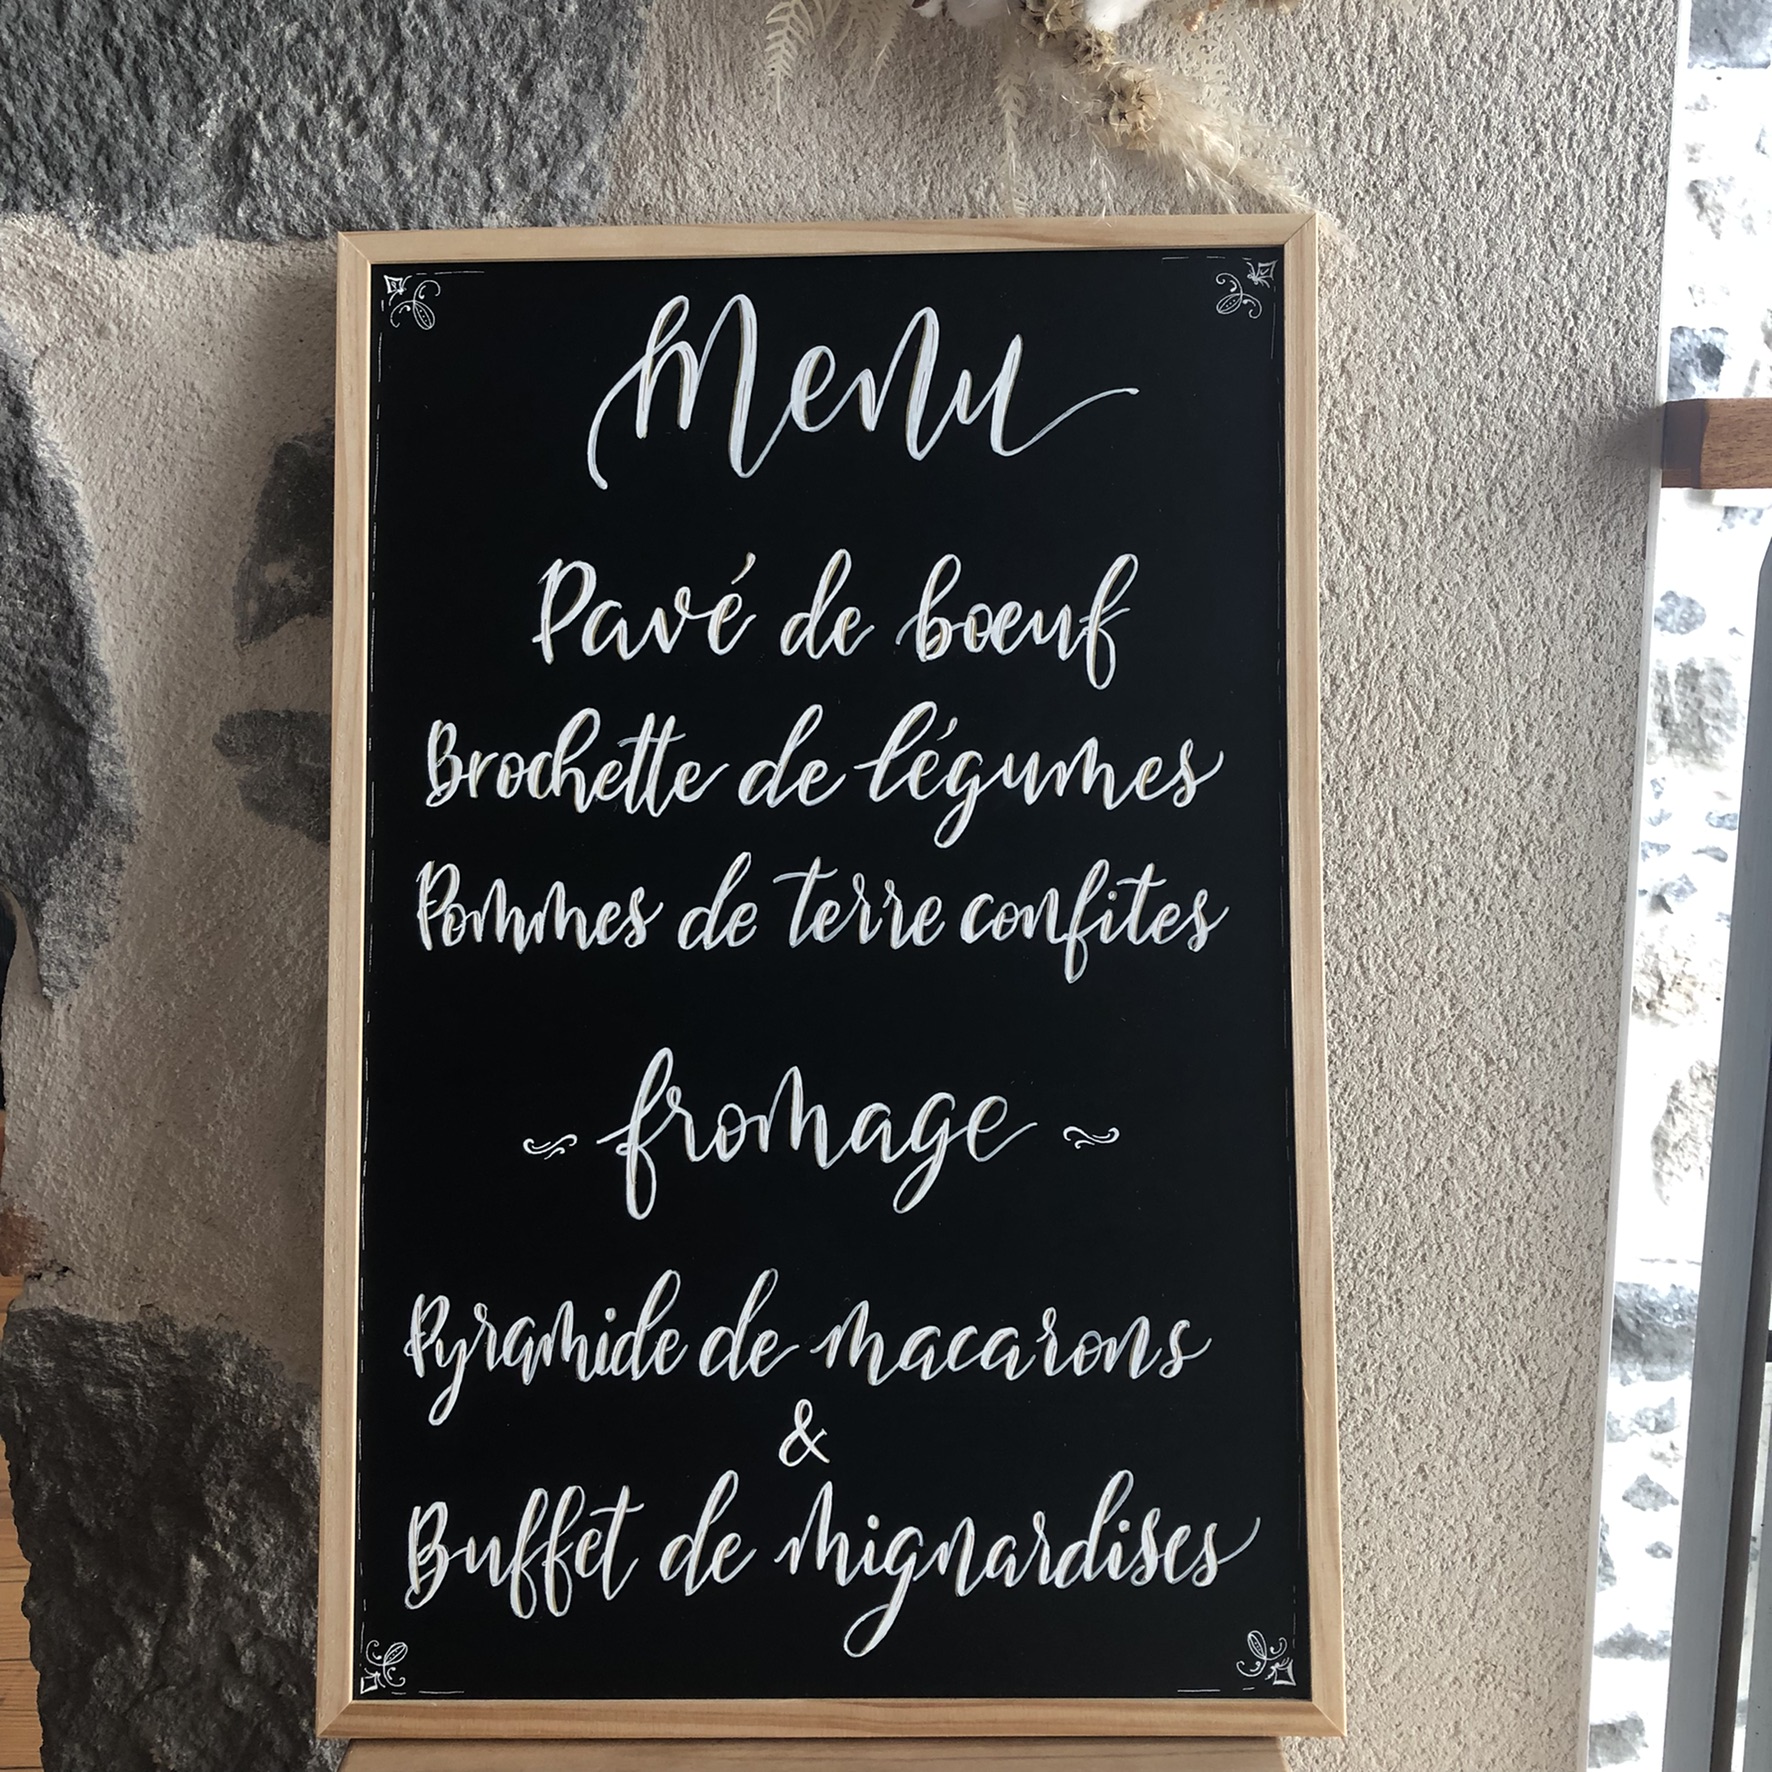 Menu
Pavé de bœuf
Brochette de légumes
Pommes de terre confites
~ fromage ~
Pyramide de macarons
&
Buffet de mignardises